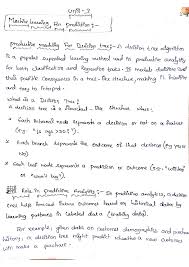 Unit-3
Machine learning for prediction:-
Predictive modelling for Decision tree:- A decision tree algorithm
is a popular supervised learning method used in predictive analytics
for both classification and regression tasks. It models decisions and
their possible consequences in a tree-like structure, making it
and easy to interpret.
What is a Decision Tree?
A decision tree is a structure where
Each internal node represents a decision or test on a feature
(eg "is age >30?")
Each branch represents the outcome of that decision
Each leaf node represents a prediction or outcome (eg
Role in Predictive Analytics:- In predictive analytics, a decision
tree helps forecast future outcomes based on historical data by
learning patterns in labeled data
For example, given data on customer demographics and purchase
history, a decision tree might predict whether a new customer
will make a purchase.